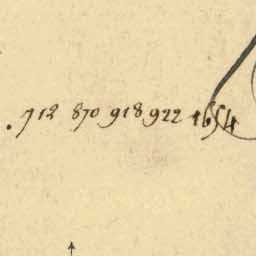 . 712 870 918 922 1654